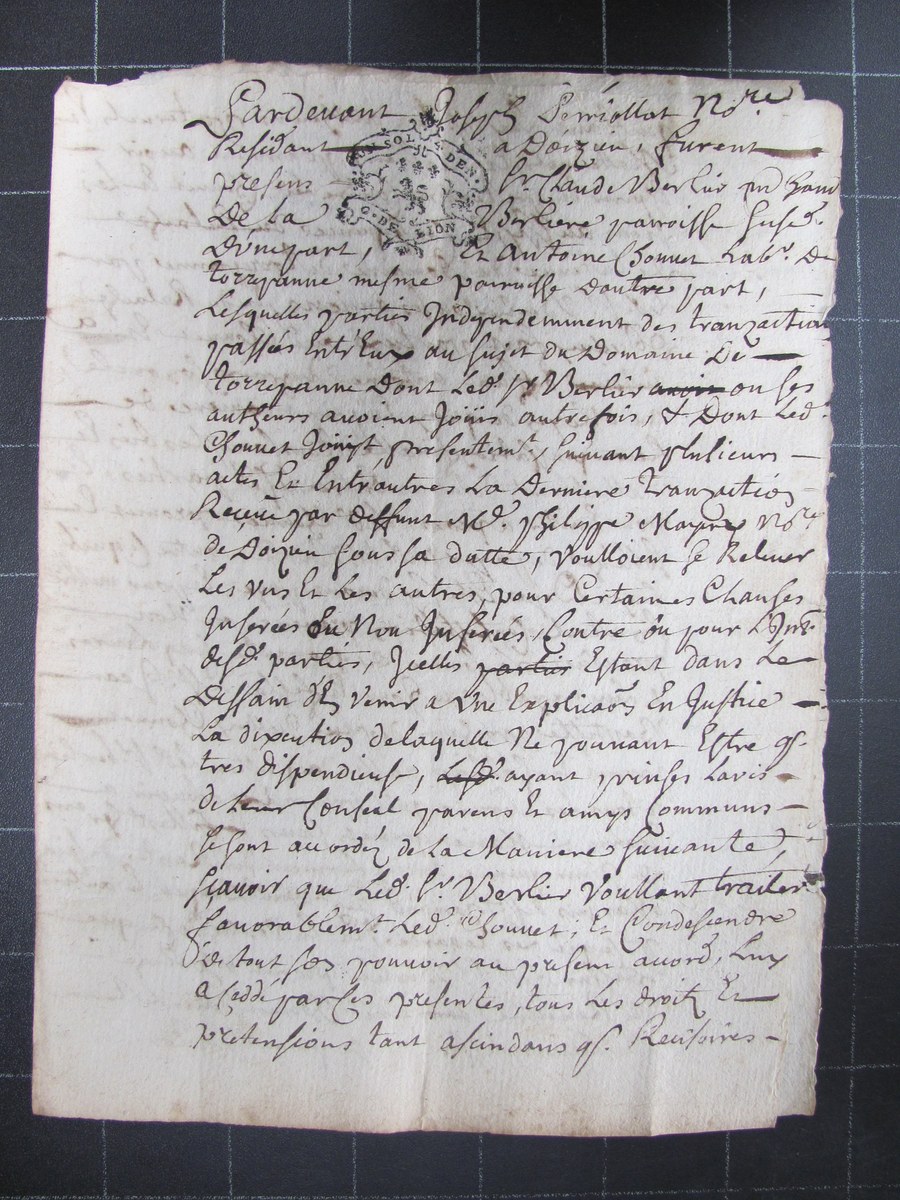 Pardevant Joseph Perriollat No.re
Residant a Doizieu, furent
presens Sr. Claude Berlier
De la Berliere parroisse susd.
D'une part, Et Antoine Chouvet Lab.r De
torrepanne mesme parroisse d'autre part,
Lesquelles parties Independemment des tranzactions
passées Entr'Eux au sujet du Domaine De
torrepanne Dont Led. Sr. Berlier avoit ou ses
autheurs avoient Joüis autrefois, & Dont Led.
Chouvet Joüist, presentem.t, suivant plusieurs
actes Et Entr'autres La Derniere tranzaction
Reçeüe par deffunt M.e philippe No.re
de Doizieu sous sa datte, voulloient se Relever
Les vns Et Les autres, pour Certaines Chauses
Inserées Ou Non Inserées, Contre ou pour L'Int.
desd. parties, Icelles parties Estant dans Le
Dessain d'En Venir a Vne Explica.on En Justice
La dixcution de laquelle Ne pouvant Estre q.
tres dispendieuse, Lesd. ayant prinses L'avis
de Leur Conseul parens Et amys Communs
se sont accordéz de la Maniere suivante,
sçavoir que Led. Sr. Berlier Voullant traiter
favorablem.t Led. Chouvet; Et Condescendre
De tout son pouvoir au present accord, Luy
a ceddé par ces presentes, tous Les droitz Et
pretensions tant q. Recisoires